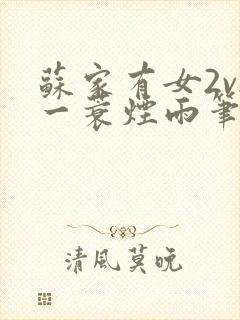 蘇家有女2v
一蓑煙雨筆
清風莫晚